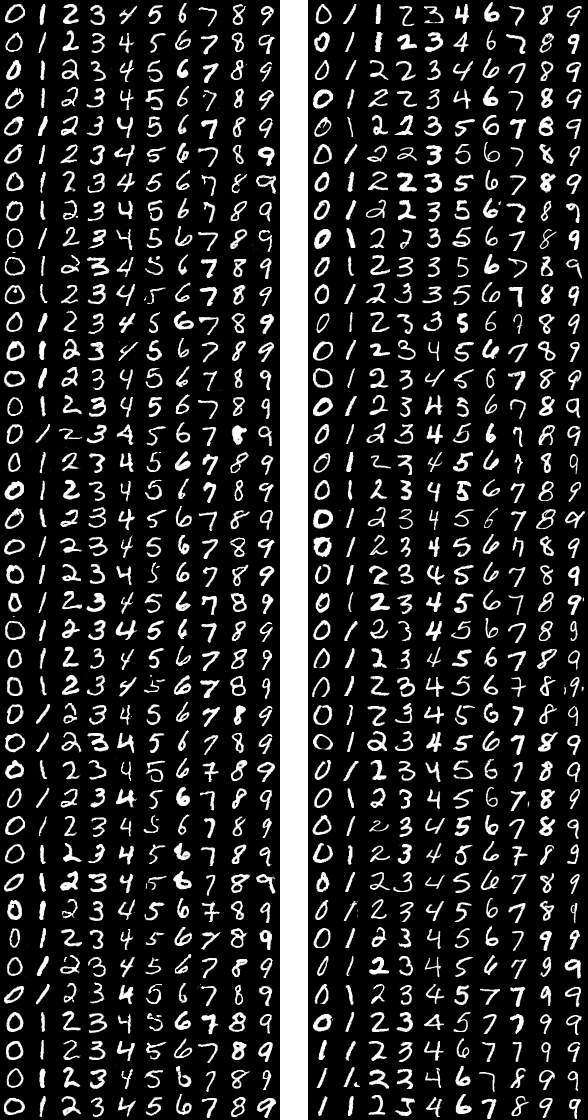 0 1 2 3 4 5 6 7 8 9
0 1 2 3 4 5 6 7 8 9
0 1 2 3 4 5 6 7 8 9
0 1 2 3 4 5 6 7 8 9
0 1 2 3 4 5 6 7 8 9
0 1 2 3 4 5 6 7 8 9
0 1 2 3 4 5 6 7 8 9
0 1 2 3 4 5 6 7 8 9
0 1 2 3 4 5 6 7 8 9
0 1 2 3 4 5 6 7 8 9
0 1 2 3 4 5 6 7 8 9
0 1 2 3 4 5 6 7 8 9
0 1 2 3 4 5 6 7 8 9
0 1 2 3 4 5 6 7 8 9
0 1 2 3 4 5 6 7 8 9
0 1 2 3 4 5 6 7 8 9
0 1 2 3 4 5 6 7 8 9
0 1 2 3 4 5 6 7 8 9
0 1 2 3 4 5 6 7 8 9
0 1 2 3 4 5 6 7 8 9
0 1 2 3 4 5 6 7 8 9
0 1 2 3 4 5 6 7 8 9
0 1 2 3 4 5 6 7 8 9
0 1 2 3 4 5 6 7 8 9
0 1 2 3 4 5 6 7 8 9
0 1 2 3 4 5 6 7 8 9
0 1 2 3 4 5 6 7 8 9
0 1 2 3 4 5 6 7 8 9
0 1 2 3 4 5 6 7 8 9
0 1 2 3 4 5 6 7 8 9
0 1 2 3 4 5 6 7 8 9
0 1 2 3 4 5 6 7 8 9
0 1 2 3 4 5 6 7 8 9
0 1 2 3 4 5 6 7 8 9
0 1 2 3 4 5 6 7 8 9
0 1 2 3 4 5 6 7 8 9
0 1 2 3 4 5 6 7 8 9
0 1 2 3 4 5 6 7 8 9
0 1 2 3 4 5 6 7 8 9
0 1 2 3 4 5 6 7 8 9
0 1 1 2 3 4 6 7 8 9
0 1 1 2 3 4 6 7 8 9
0 1 2 2 3 4 6 7 8 9
0 1 2 2 3 4 6 7 8 9
0 1 2 2 3 5 6 7 8 9
0 1 2 2 3 5 6 7 8 9
0 1 2 2 3 5 6 7 8 9
0 1 2 2 3 5 6 7 8 9
0 1 2 2 3 5 6 7 8 9
0 1 2 3 3 5 6 7 8 9
0 1 2 3 3 5 6 7 8 9
0 1 2 3 3 5 6 7 8 9
0 1 2 3 4 5 6 7 8 9
0 1 2 3 4 5 6 7 8 9
0 1 2 3 4 5 6 7 8 9
0 1 2 3 4 5 6 7 8 9
0 1 2 3 4 5 6 7 8 9
0 1 2 3 4 5 6 7 8 9
0 1 2 3 4 5 6 7 8 9
0 1 2 3 4 5 6 7 8 9
0 1 2 3 4 5 6 7 8 9
0 1 2 3 4 5 6 7 8 9
0 1 2 3 4 5 6 7 8 9
0 1 2 3 4 5 6 7 8 9
0 1 2 3 4 5 6 7 8 9
0 1 2 3 4 5 6 7 8 9
0 1 2 3 4 5 6 7 8 9
0 1 2 3 4 5 6 7 8 9
0 1 2 3 4 5 6 7 8 9
0 1 2 3 4 5 6 7 8 9
0 1 2 3 4 5 6 7 8 9
0 1 2 3 4 5 6 7 8 9
0 1 2 3 4 5 6 7 8 9
0 1 2 3 4 5 6 7 9 9
0 1 2 3 4 5 6 7 9 9
0 1 2 3 4 5 7 7 9 9
0 1 2 3 4 5 7 7 9 9
1 1 2 3 4 6 7 7 9 9
1 1 2 3 4 6 7 8 9 9
1 1 2 3 4 6 7 8 9 9